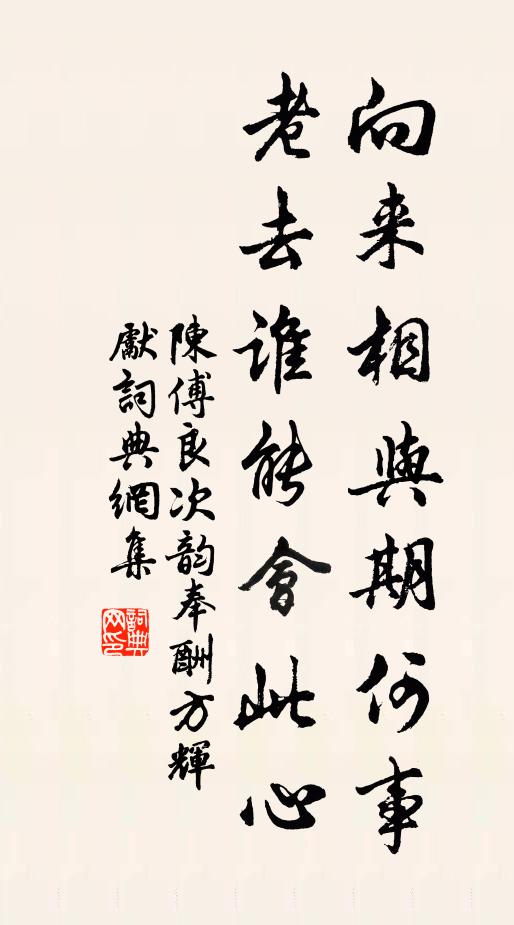 向来相與期何事
老去誰能會此心
陳傅良次韵奉酬方輝
獻詞典網集
詞典網印